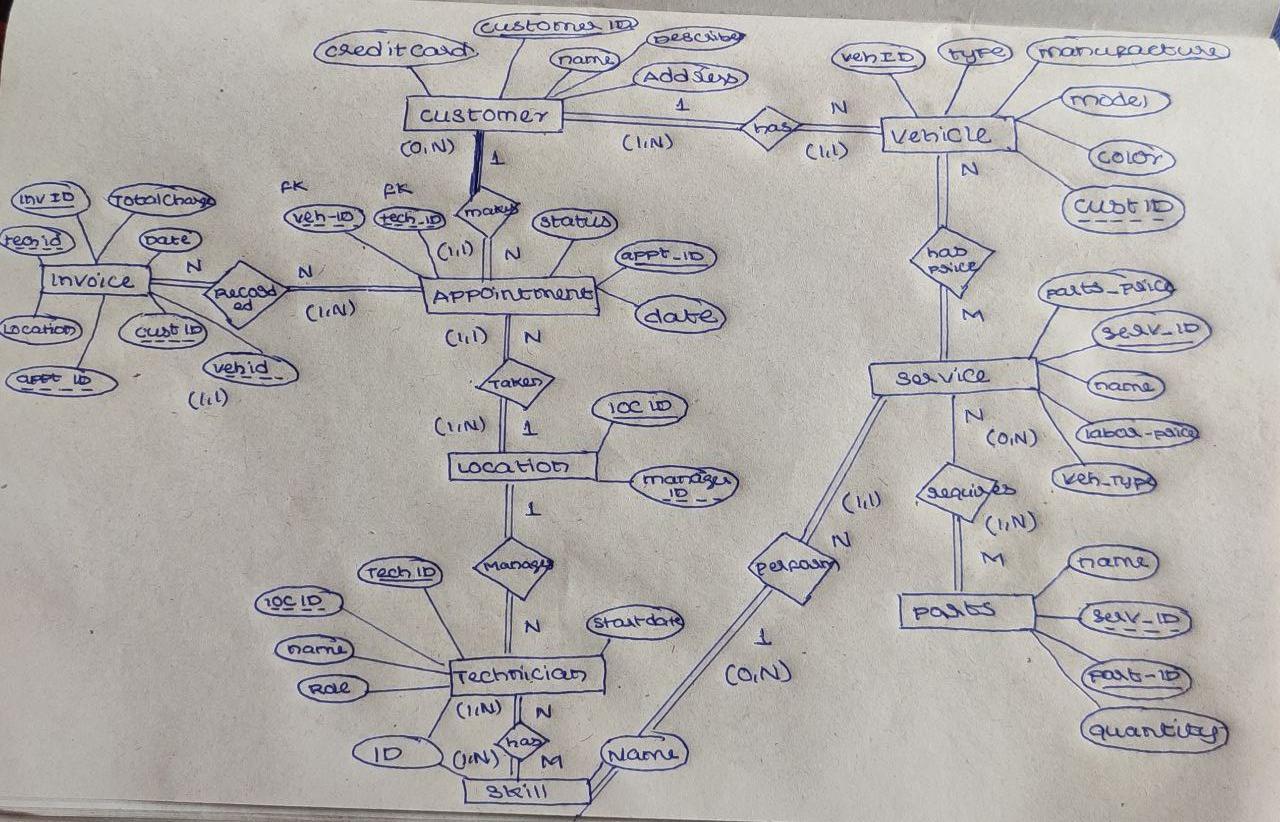 customer ID
creditcard
Describe
name
Address
customer
1
(1,N)
has
N
(1,1)
vehID
type
manufacture
model
color
cust ID
vehicle
(0,N)
1
makes
(1,1)
N
FK
veh-ID
FK
tech_ID
status
appt_ID
date
Appointment
Inv ID
Total Charge
techid
Date
Invoice
N
Recorded
N
(1,N)
Location
cust ID
appt ID
vehid
(1,1)
N
has
price
M
parts-price
serv_ID
name
labor-price
veh_type
service
(1,1)
N
Taken
(1,N)
1
lOC ID
manager
ID
Location
1
Manages
N
Tech ID
lOC ID
name
Role
ID
startdate
Technician
(1,N)
N
has
(1,N)
M
Skill
Name
(1,1)
N
perform
1
(0,N)
N
(0,N)
requires
(1,N)
M
parts
name
serv_ID
part-ID
quantity